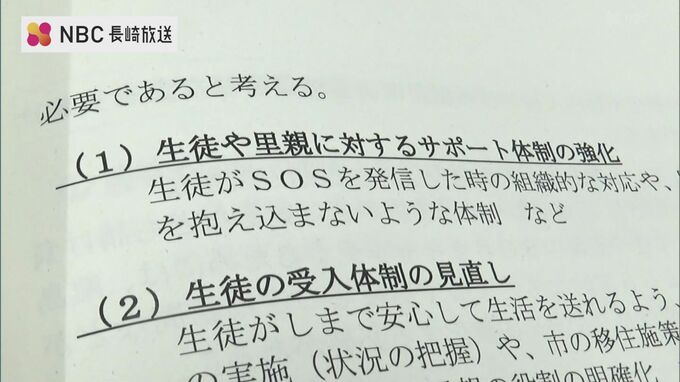 NBC 長崎放送
必要であると考える。
（１）生徒や里親に対するサポート体制の強化
生徒がＳＯＳを発信した時の組織的な対応や、
を抱え込まないような体制　など
（２）生徒の受入体制の見直し
生徒がしまで安心して生活を送れるよう、
の実施（状況の把握）や、市の移住施策
の役割の明確化